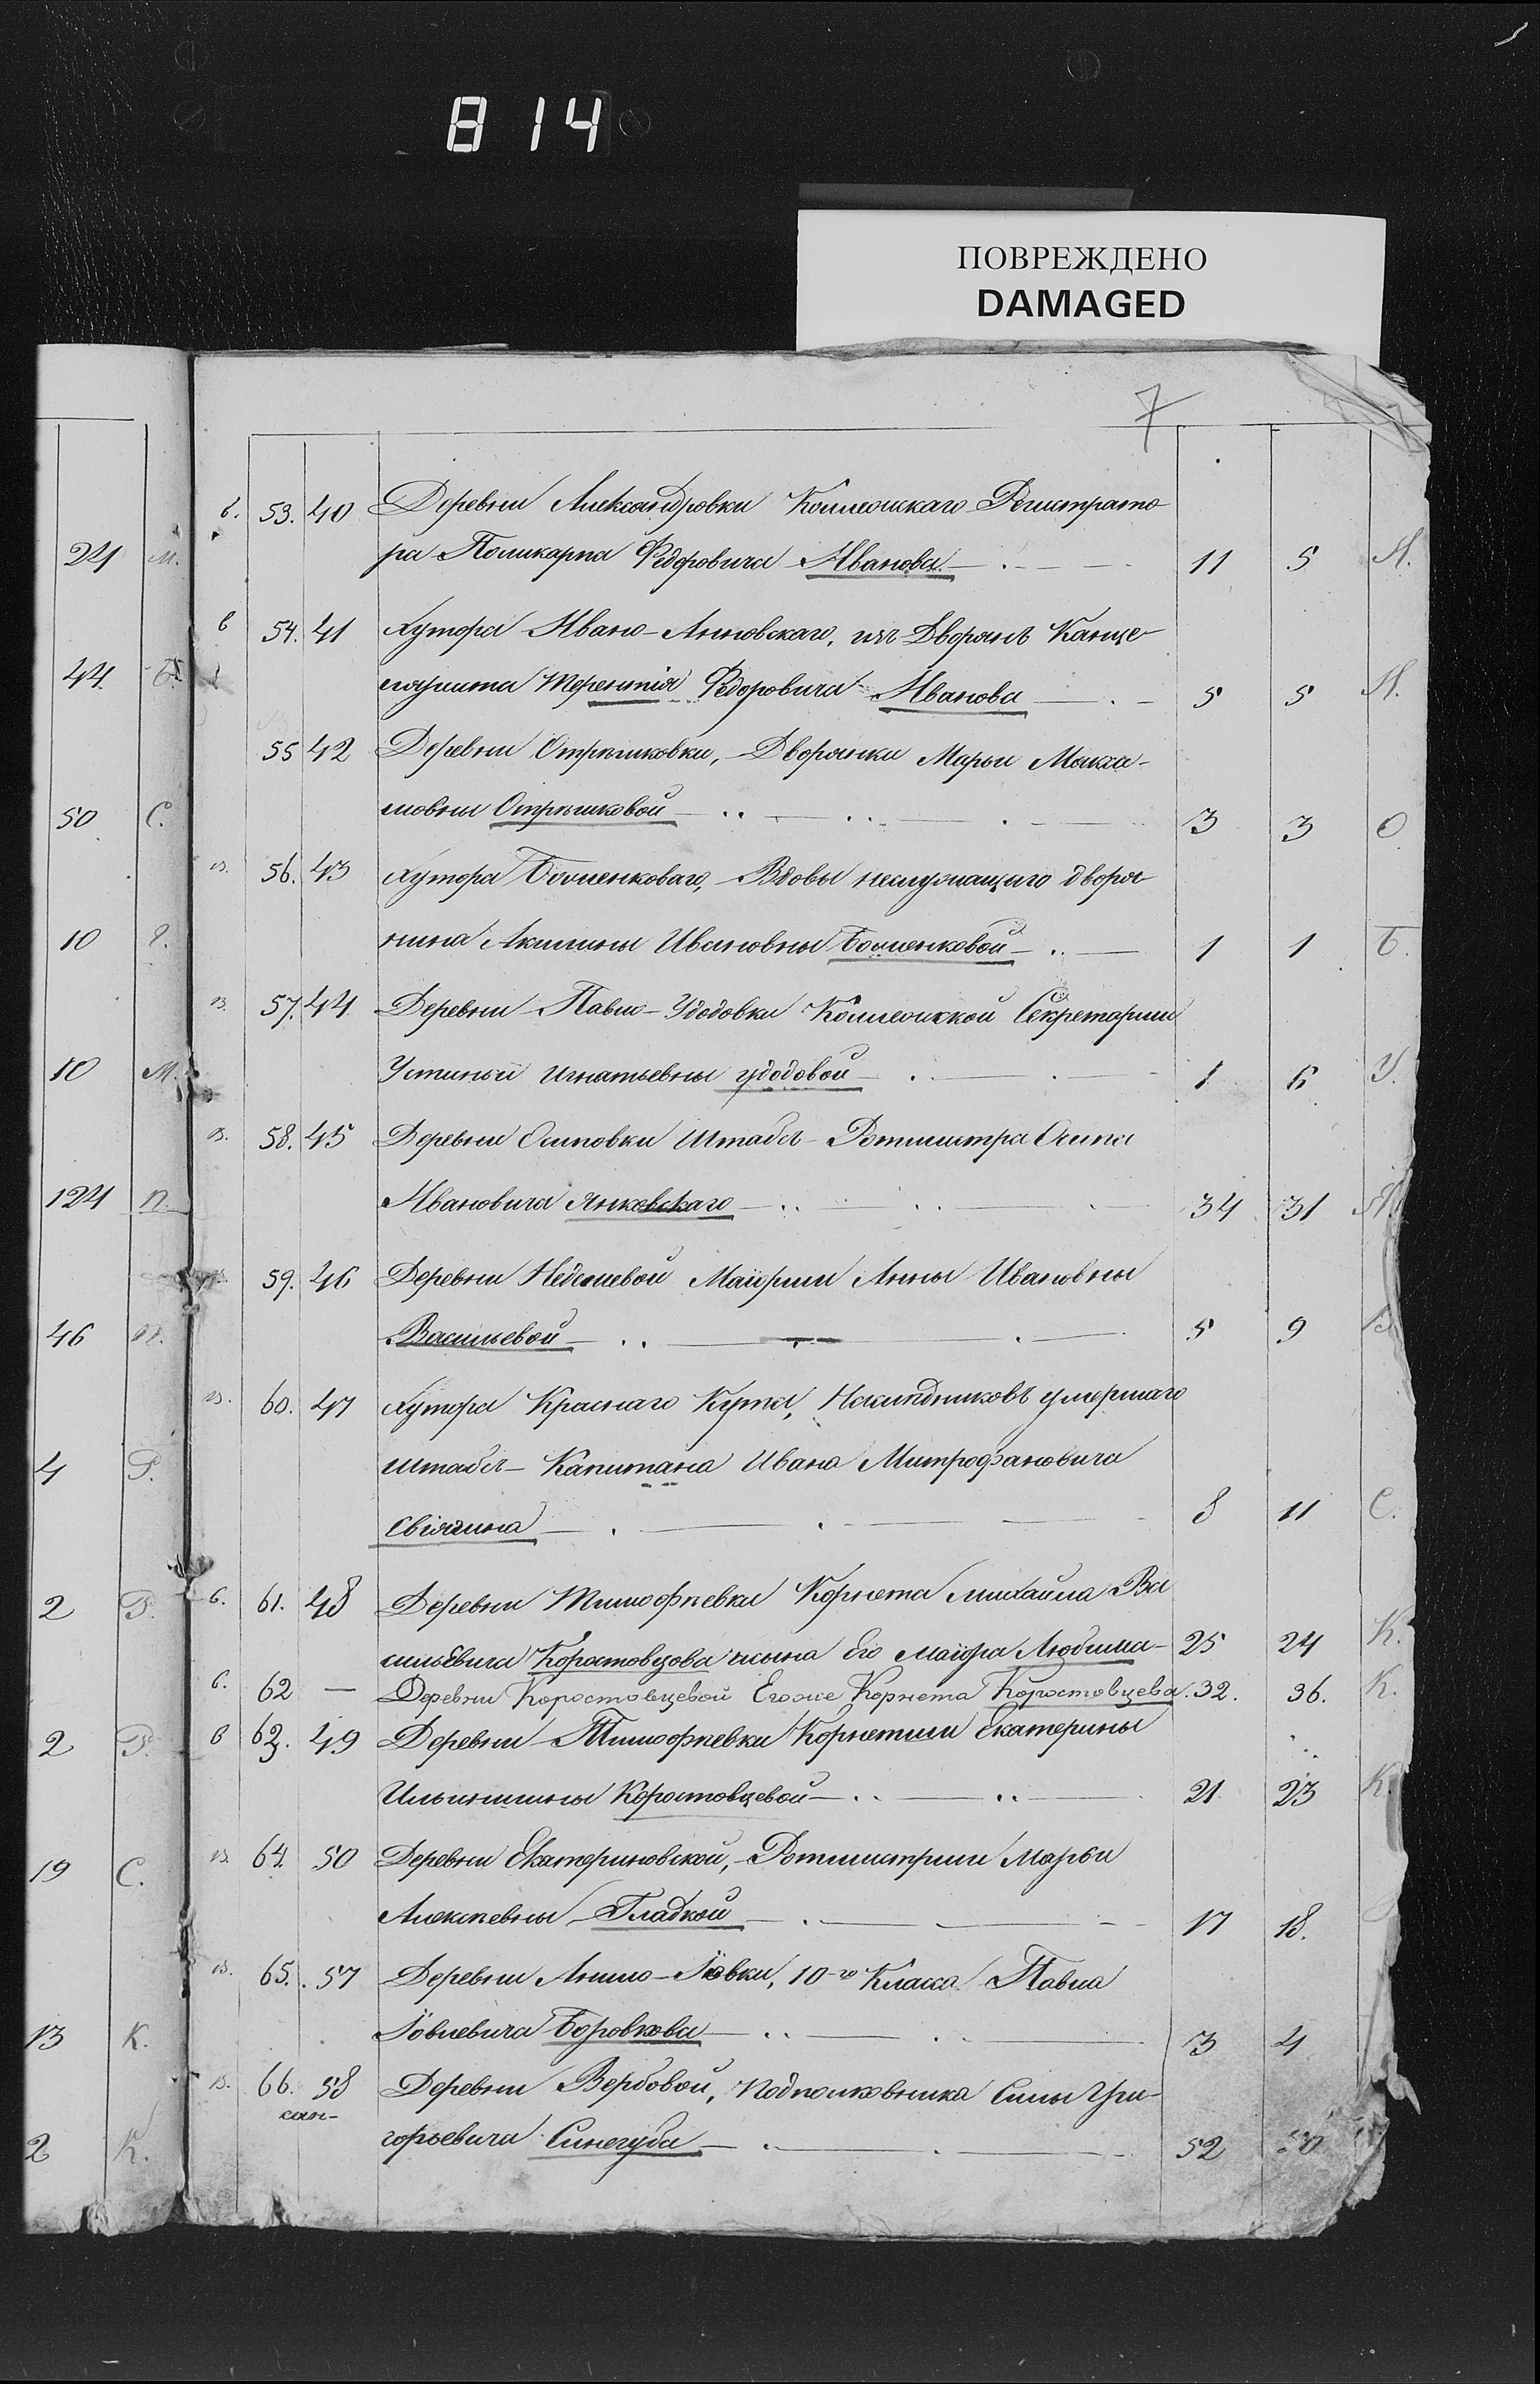 814
ПОВРЕЖДЕНО
DAMAGED
7
в. 53. 40 Деревни Александровки Коллежскаго Регистрато
ра Поликарпа Федоровича Иванова 11 5 И.
в 54. 41 Хутора Ивано-Анновскаго, изъ Дворянъ Канце-
ляриста Терентія Федоровича Иванова 5 5 И.
55 42 Деревни Отрѣшковки, Дворянки Марьи Михай-
ловны Отрѣшковой 3 3 О
в. 56. 43 Хутора Боженковаго, Вдовы неслужащаго дворя-
нина Акилины Ивановны Боженковой 1 1 Б.
в. 57. 44 Деревни Павло-Удодовки Коллежской Секретарши
Устиньи Игнатьевны Удодовой 1 6 У.
в. 58. 45 Деревни Осиповки Штабсъ-Ротмистра Осипа
Ивановича Янковскаго 34 31 Я.
59. 46 Деревни Неделиевой Маіорши Анны Ивановны
Васильевой 5 9 В
в. 60. 47 Хутора Краснаго Кута, Наслѣдниковъ умершаго
Штабсъ-Капитана Ивана Митрофановича
Свіягина 8 11 С.
в. 61. 48 Деревни Тимофѣевки Корнета Михайла Ва
сильевича Коростовцова и сына Его Маіора Любима 25 24 К.
в. 62 — Деревни Коростовцевой Егоже Корнета Коростовцева. 32. 36. К.
в 63. 49 Деревни Тимофѣевки Корнетши Екатерины
Ильинишны Коростовцевой 21 23 К.
в. 64. 50 Деревни Екатериновской, Ротмистрши Марьи
Алексѣевны Гладкой 17 18.
в. 65. 57 Деревни Анно-Іовки, 10-го Класса Павла
Іовлевича Боровкова 3 4
в. 66. 58 Деревни Вербовой, Подполковника Силы Гри-
горьевича Синегуба 52 50
24 М.
44. Б.
50 С.
10
10 М.
124 П.
46 П.
4 Р.
2 Р.
2 Р.
19 С.
13 К.
2 К.